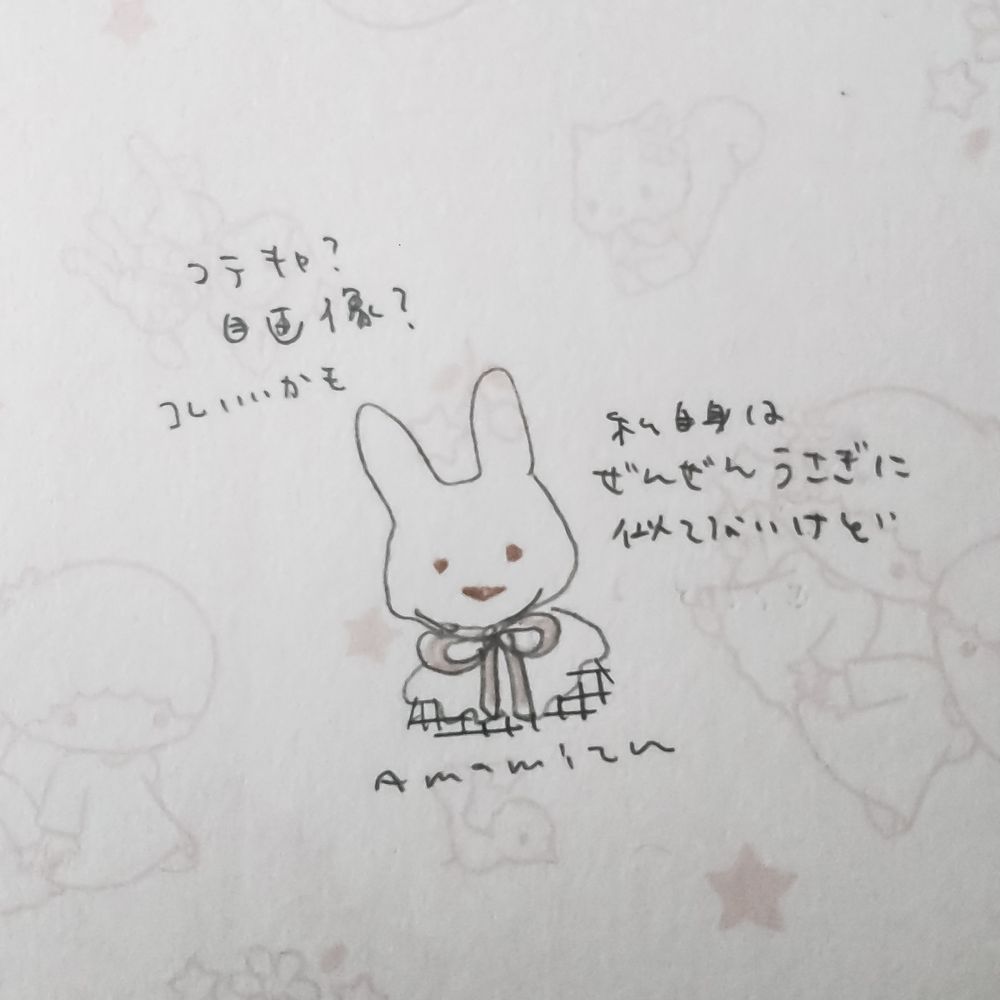 コテキャ?
自画像?
コレいいかも
私自身は
ぜんぜんうさぎに
似てないけど
Amamizu